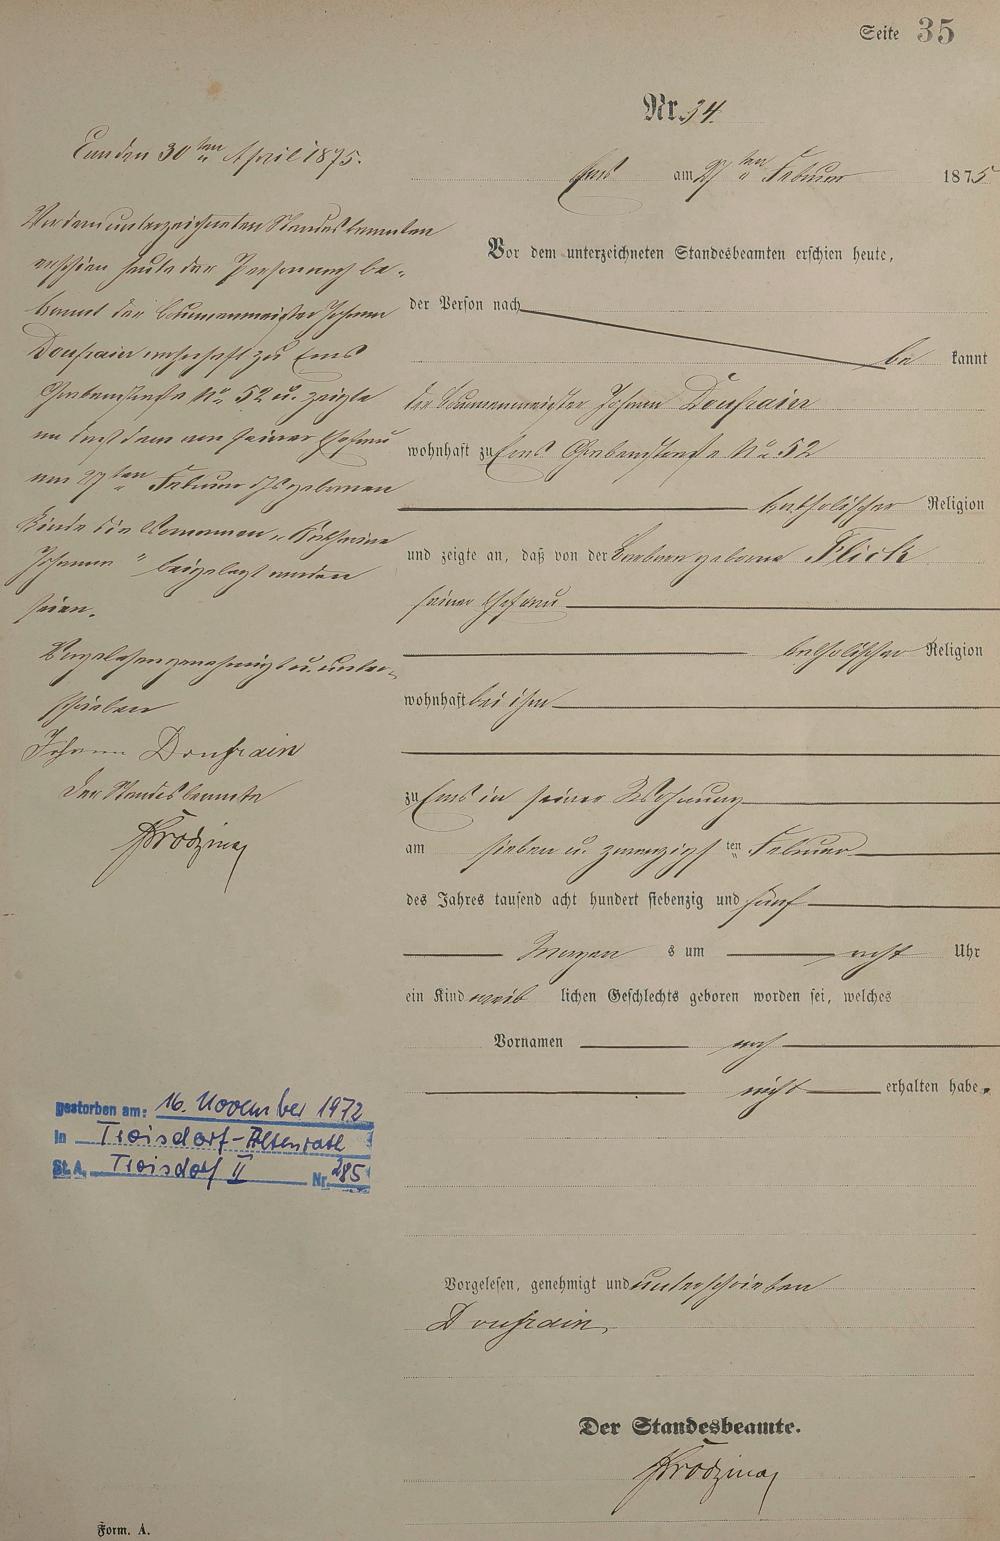 Seite 35
Nr. 34.
Ems den 30ten April 1875.
Ems am 27ten Februar 1875
Vor dem unterzeichneten Standesbeamten
erschien heute der Person nach be-
kannt der Brunnenmeister Johann
Doufrain wohnhaft zu Ems
Grabenstraße No 52 u. zeigte
an daß dem von seiner Ehefrau
am 27ten Februar geborenen
Kinde die Vornamen „Katharine
Johanna" beigelegt worden
seien.
Vorgelesen genehmigt u. unter-
schrieben
Johann Doufrain
Der Standesbeamte
Vor dem unterzeichneten Standesbeamten erschien heute,
der Person nach
be kannt
der Brunnenmeister Johann Doufrain
wohnhaft zu Ems Grabenstraße No 52
katholischer Religion
und zeigte an, daß von der Barbara geborene Flick
seiner Ehefrau
katholischer Religion
wohnhaft bei ihm
zu Ems in seiner Wohnung
am sieben u. zwanzigsten Februar
des Jahres tausend acht hundert siebenzig und fünf
Morgens um acht Uhr
ein Kind weiblichen Geschlechts geboren worden sei, welches
Vornamen noch
nicht erhalten habe.
gestorben am: 16. November 1972
in Troisdorf-Altenrath
St. A. Troisdorf II Nr. 285
Vorgelesen, genehmigt und unterschrieben
Doufrain
Der Standesbeamte.
Form. A.